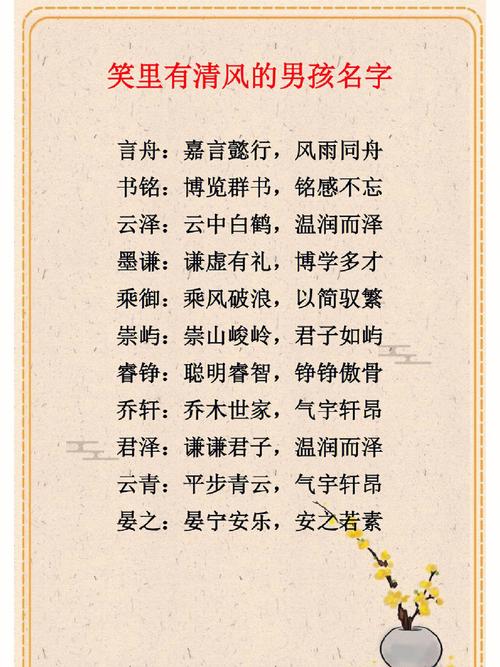 笑里有清风的男孩名字
言舟：嘉言懿行，风雨同舟
书铭：博览群书，铭感不忘
云泽：云中白鹤，温润而泽
墨谦：谦虚有礼，博学多才
乘御：乘风破浪，以简驭繁
崇屿：崇山峻岭，君子如屿
睿铮：聪明睿智，铮铮傲骨
乔轩：乔木世家，气宇轩昂
君泽：谦谦君子，温润而泽
云青：平步青云，气宇轩昂
晏之：晏宁安乐，安之若素